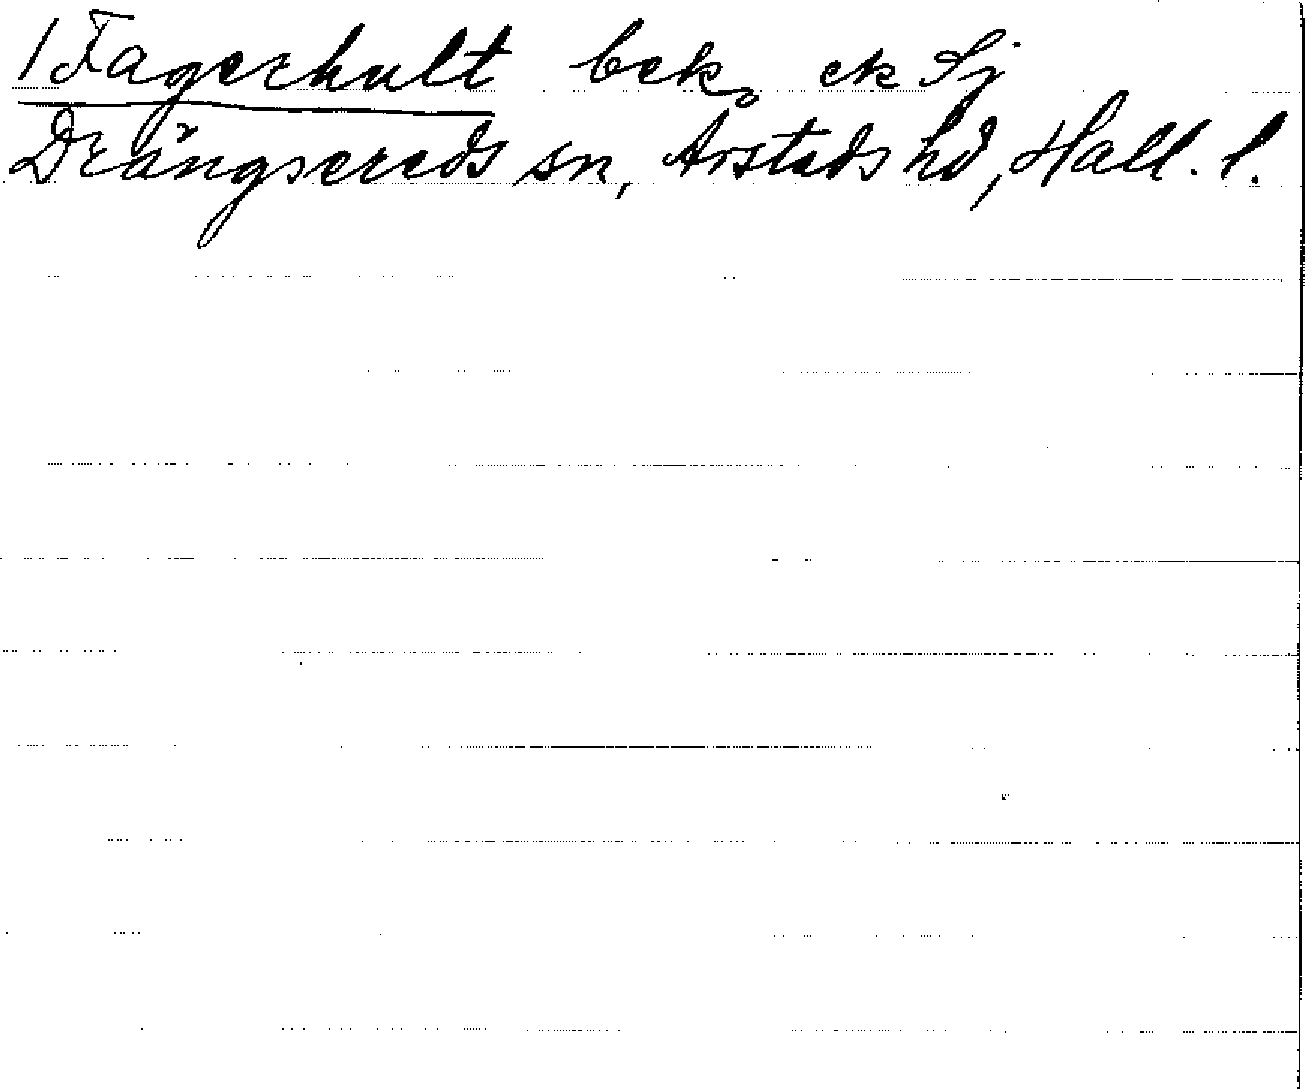 1 Fagerhult bek. ek Sj
Drängsereds sn, Årstads hd, Hall. l.